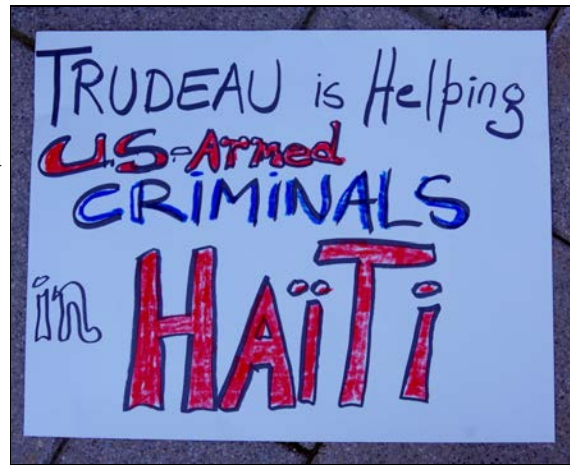 TRUDEAU is Helping
US-Armed
CRiMiNALS
in HAïTi